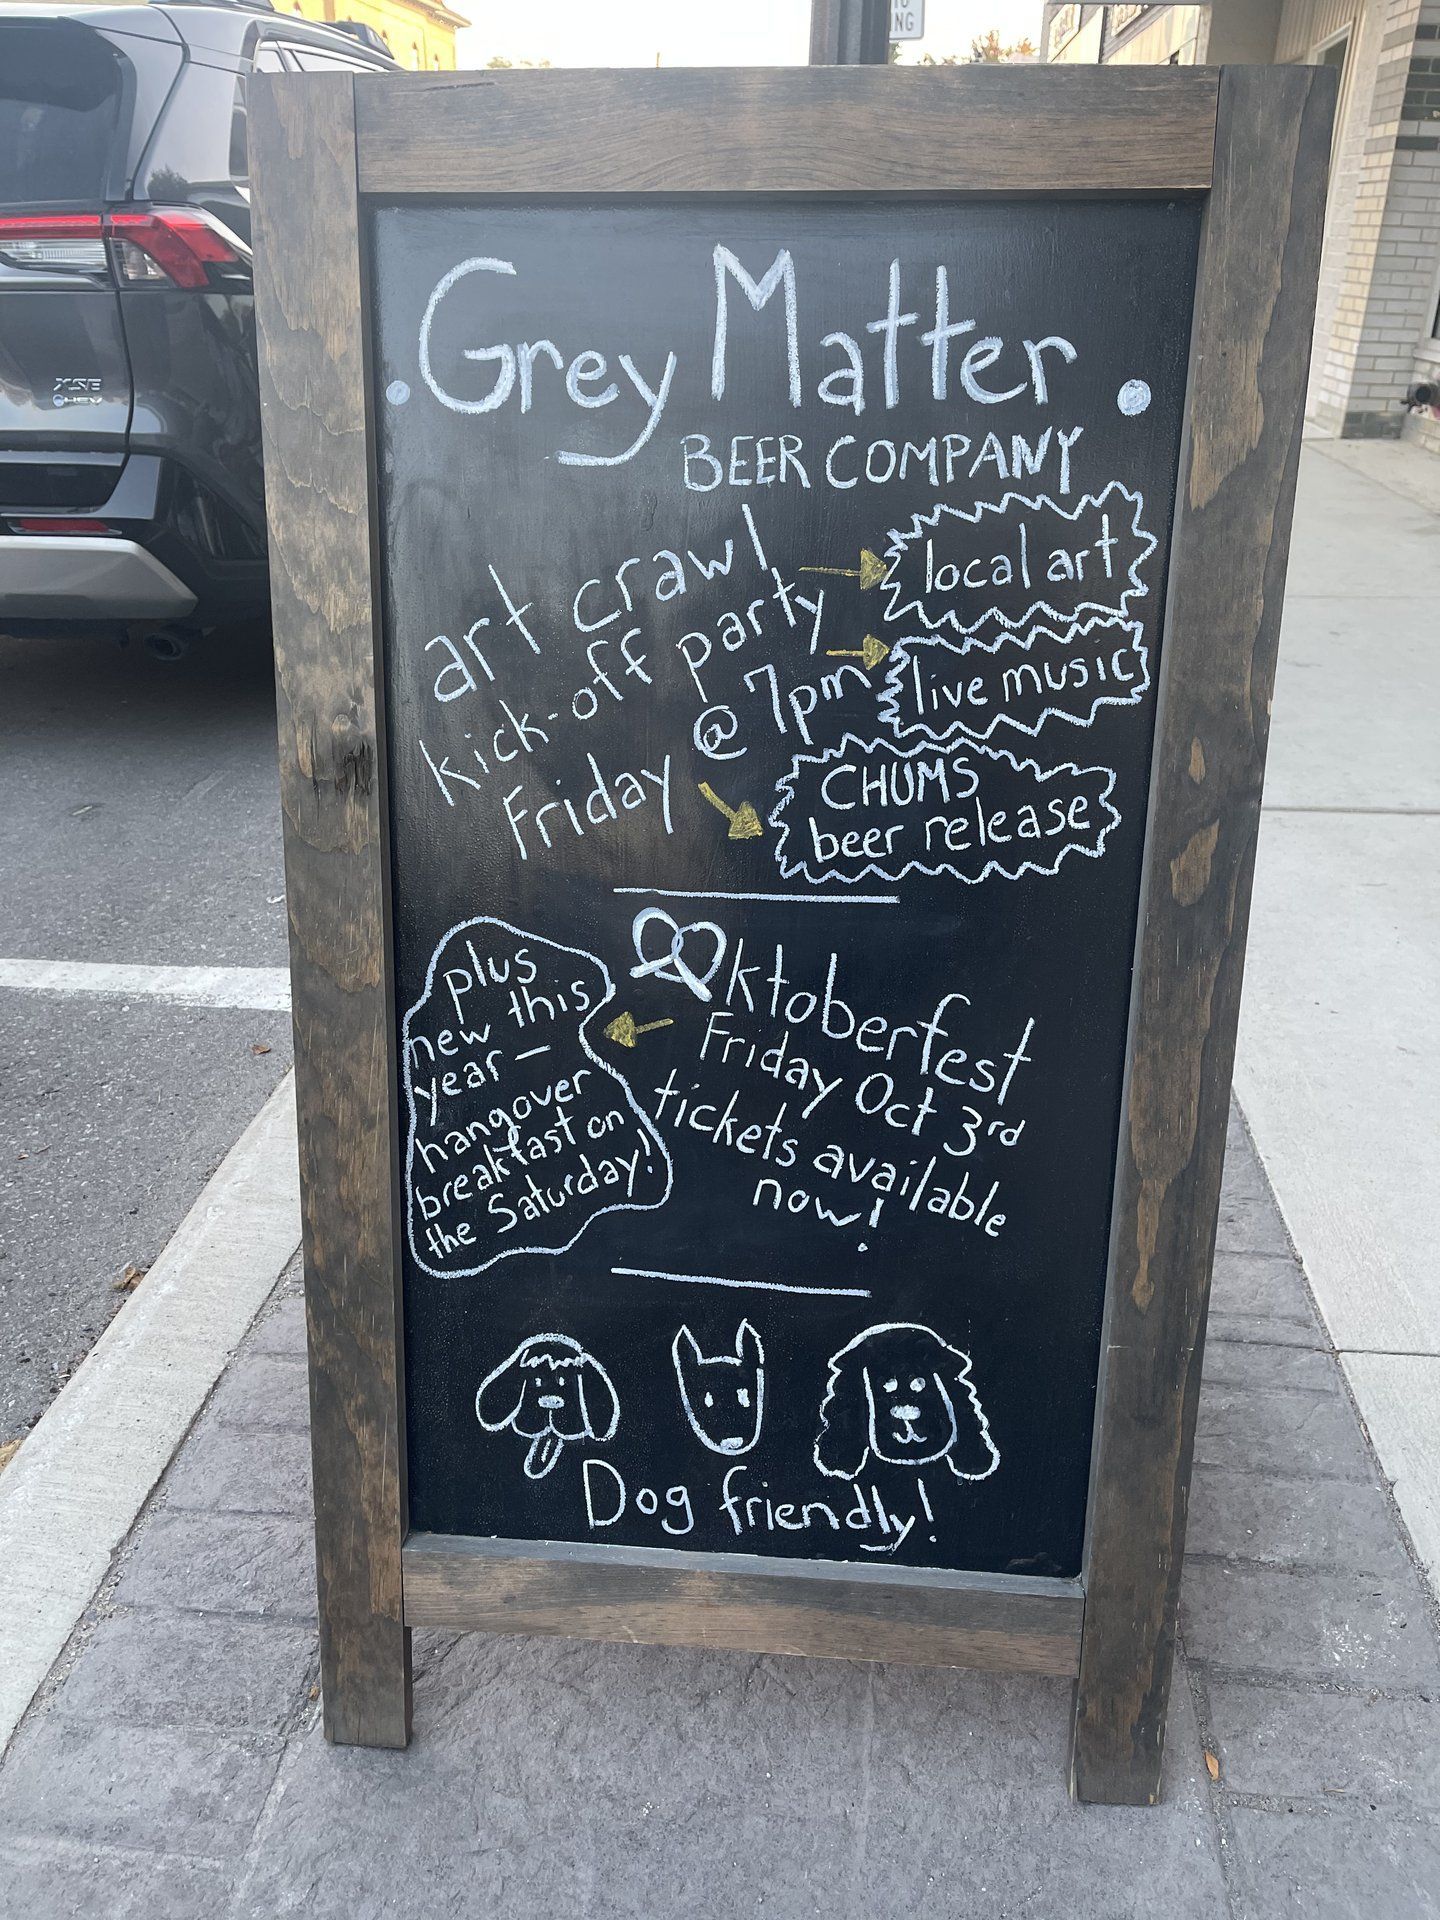 NG
XSE
HEV
Grey Matter
BEER COMPANY
art crawl
kick-off party
Friday @ 7pm
local art
live music
CHUMS
beer release
plus
new this
year –
hangover
breakfast on
the Saturday!
Oktoberfest
Friday Oct 3rd
tickets available
now!
Dog friendly!